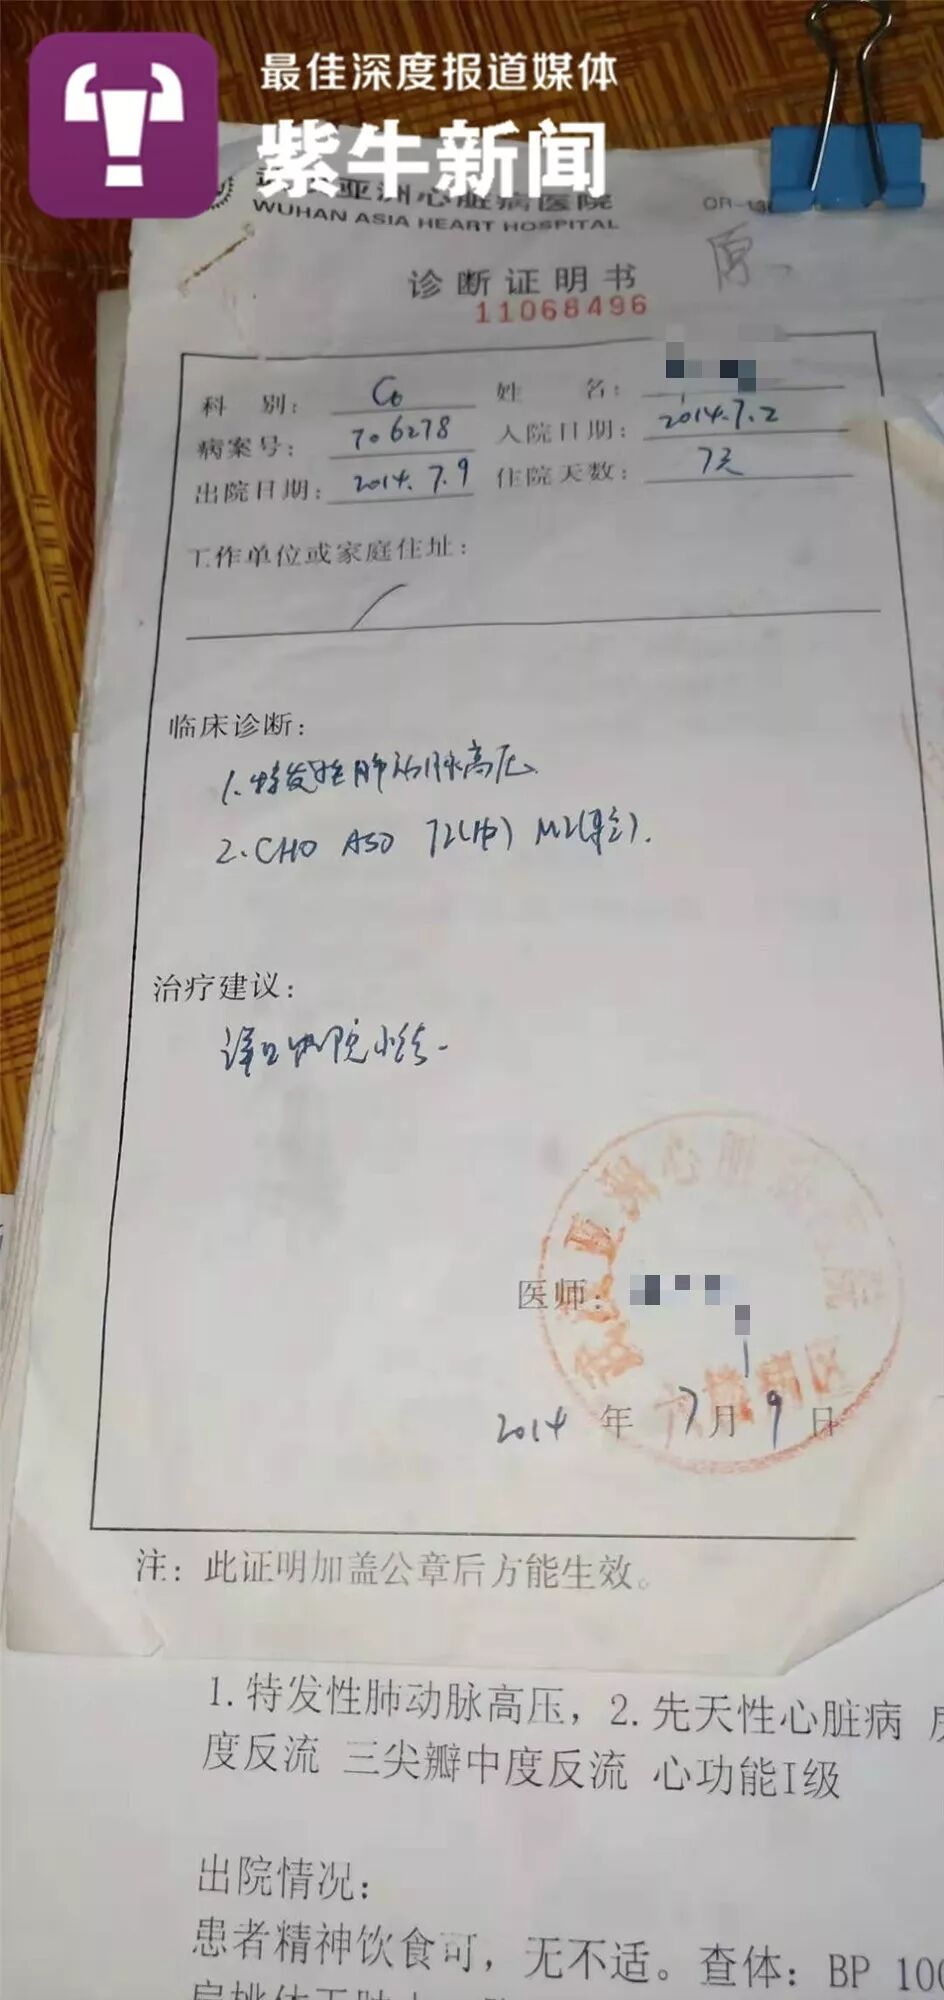 最佳深度报道媒体
紫牛新闻
亚洲心脏病医院
WUHAN ASIA HEART HOSPITAL
诊断证明书
11068496
科 别: C6 姓 名:
病案号: 706278 入院日期: 2014.7.2
出院日期: 2014.7.9 住院天数: 7天
工作单位或家庭住址:
临床诊断:
1.特发性肺动脉高压
2.CHD ASD
治疗建议:
医师:
2014 年 7 月 9 日
注: 此证明加盖公章后方能生效。
1.特发性肺动脉高压, 2.先天性心脏病
度反流 三尖瓣中度反流 心功能I级
出院情况:
患者精神饮食可, 无不适。查体: BP 100